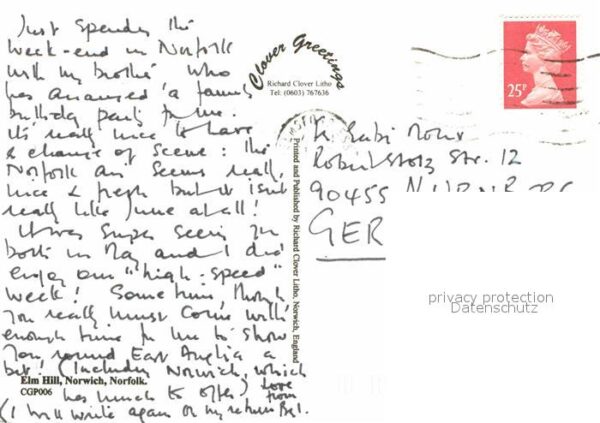 Just spending the
week-end in Norfolk
with my brother who
has arranged a family
birthday party for me.
It's really nice to have
a change of scene: the
Norfolk air seems really
nice & fresh but it isn't
really like June at all!
It was super seeing you
both in May and I did
enjoy our "high-speed"
week! Sometime, though
you really must come with
enough time for me to show
you round East Anglia a
bit! (Including Norwich, which
has much to offer) Love
from
(I will write again on my return
Elm Hill, Norwich, Norfolk.
CGP006
Clover Greetings
Richard Clover Litho
Tel: (0603) 767636
Printed and Published by Richard Clover Litho, Norwich, England
25P
Robert Stolz Str. 12
90455
GER
privacy protection
Datenschutz